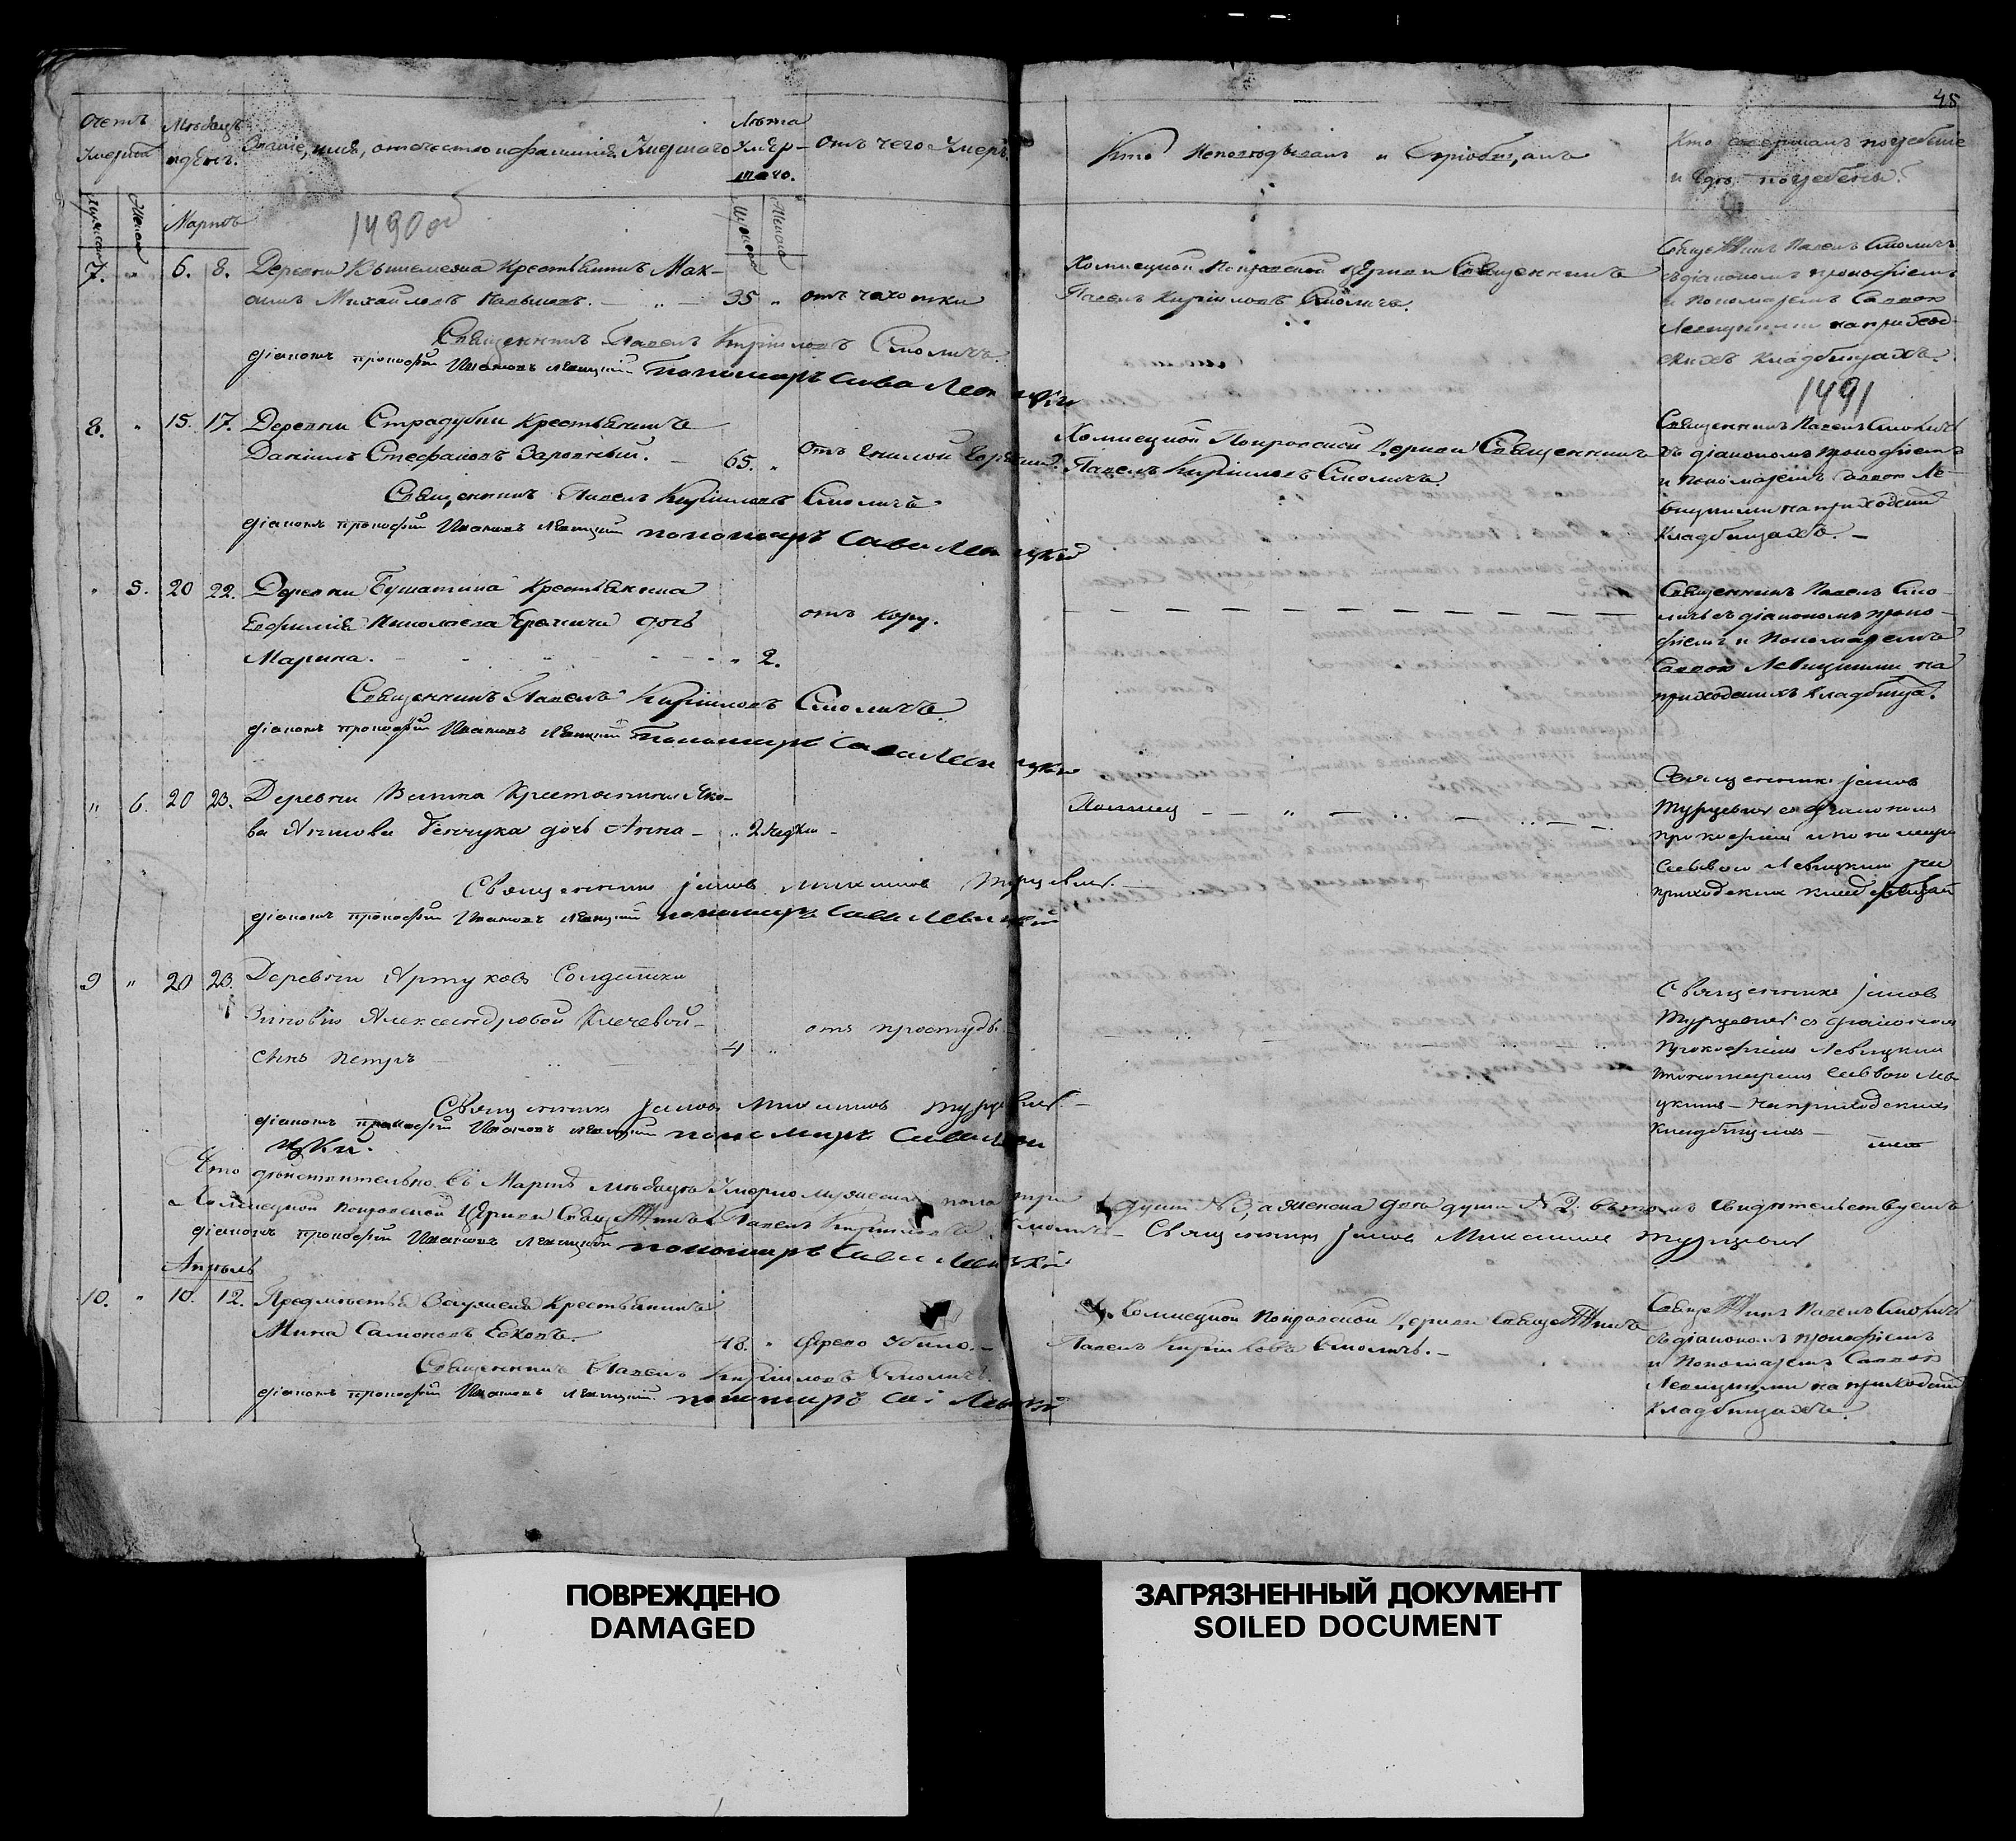 45
Счетъ Умерш
Мѣсяцъ и день.
Званіе, имя, отчество и фамилія Умершаго
Лѣта Умер-
шаго.
Отъ чего Умеръ
Кто Исповѣдывалъ и Пріобщалъ
Кто совершалъ погребеніе
и гдѣ погребены.
Мартъ
1490 об
7. " 6. 8. Деревни Крестьянинъ Мак-
симъ Михайловъ — " — 35 " отъ чахотки
Хомецкой Покровской Церкви Священникъ
Павелъ Кириловъ Смоличъ.
Священникъ Павелъ Смоличъ
съ діакономъ Прокофіемъ
и Пономаремъ Саввою
Левицкими на приход-
скихъ кладбищахъ.
Священникъ Павелъ Кириловъ Смоличъ.
діаконъ Прокофій Ивановъ Левицкій пономарь Сава Левицкій
1491
8. " 15. 17. Деревни Страдубки Крестьянинъ
Даніилъ Стефановъ — 65. " отъ гнилой горячки.
Хомецкой Покровской Церкви Священникъ
Павелъ Кириловъ Смоличъ.
Священникъ Павелъ Смоличъ
съ діакономъ Прокофіемъ
и Пономаремъ Саввою Ле-
вицкими на приходскихъ
кладбищахъ. —
Священникъ Павелъ Кириловъ Смоличъ
діаконъ Прокофій Ивановъ Левицкій пономарь Сава Левицкій
" 5. 20 22. Деревни Бушатина Крестьянина
Николаева дочь
Марина. " 2.
отъ кору.
Священникъ Павелъ Смо-
личъ съ діакономъ Проко-
фіемъ и Пономаремъ
Саввою Левицкими на
приходскихъ кладбища.
Священникъ Павелъ Кириловъ Смоличъ.
діаконъ Прокофій Ивановъ Левицкій пономарь Сава Левицкій
" 6. 20 23. Деревни Крестьянина Яко-
ва дочь Анна — " 2
Священникъ Іаковъ
Турцевичъ съ діакономъ
Прокофіемъ и пономаремъ
Саввою Левицкими на
приходскихъ кладбищахъ
Священникъ Іаковъ Турцевичъ.
діаконъ Прокофій Ивановъ Левицкій пономарь Сава Левицкій
9 " 20 23. Деревни Артуковъ Солдатки
Зиновіи Александровой —
сынъ Петръ 4 " отъ простуды
Священникъ Іаковъ
Турцевичъ съ діакономъ
Прокофіемъ Левицкимъ
пономаремъ Саввою Леви-
цкимъ — на приходскихъ
кладбищахъ —
Священникъ Іаковъ Турцевичъ. —
діаконъ Прокофій Ивановъ Левицкій пономарь Сава Леви
цкій.
Что дѣйствительно въ Мартѣ мѣсяцѣ Умерло мужеска пола три души №3, а женска двѣ души №2. въ томъ свидѣтельствуемъ
Хомецкой Покровской Церкви Священникъ Павелъ Кириловъ Смоличъ — Священникъ Іаковъ Турцевичъ
діаконъ Прокофій Ивановъ Левицкій пономарь Сава Левицкій
Апрѣль
10. " 10. 12. Предмѣстья Крестьянинъ
Мина 48. " Древо Убило. —
Хомецкой Покровской Церкви Священникъ
Павелъ Кириловъ Смоличъ. —
Священникъ Павелъ Смоличъ
съ діакономъ Прокофіемъ
и Пономаремъ Саввою
Левицкими на приходскихъ
кладбищахъ.
Священникъ Павелъ Кириловъ Смоличъ.
діаконъ Прокофій Ивановъ Левицкій. пономарь Сава Левицкій
ПОВРЕЖДЕНО
DAMAGED
ЗАГРЯЗНЕННЫЙ ДОКУМЕНТ
SOILED DOCUMENT